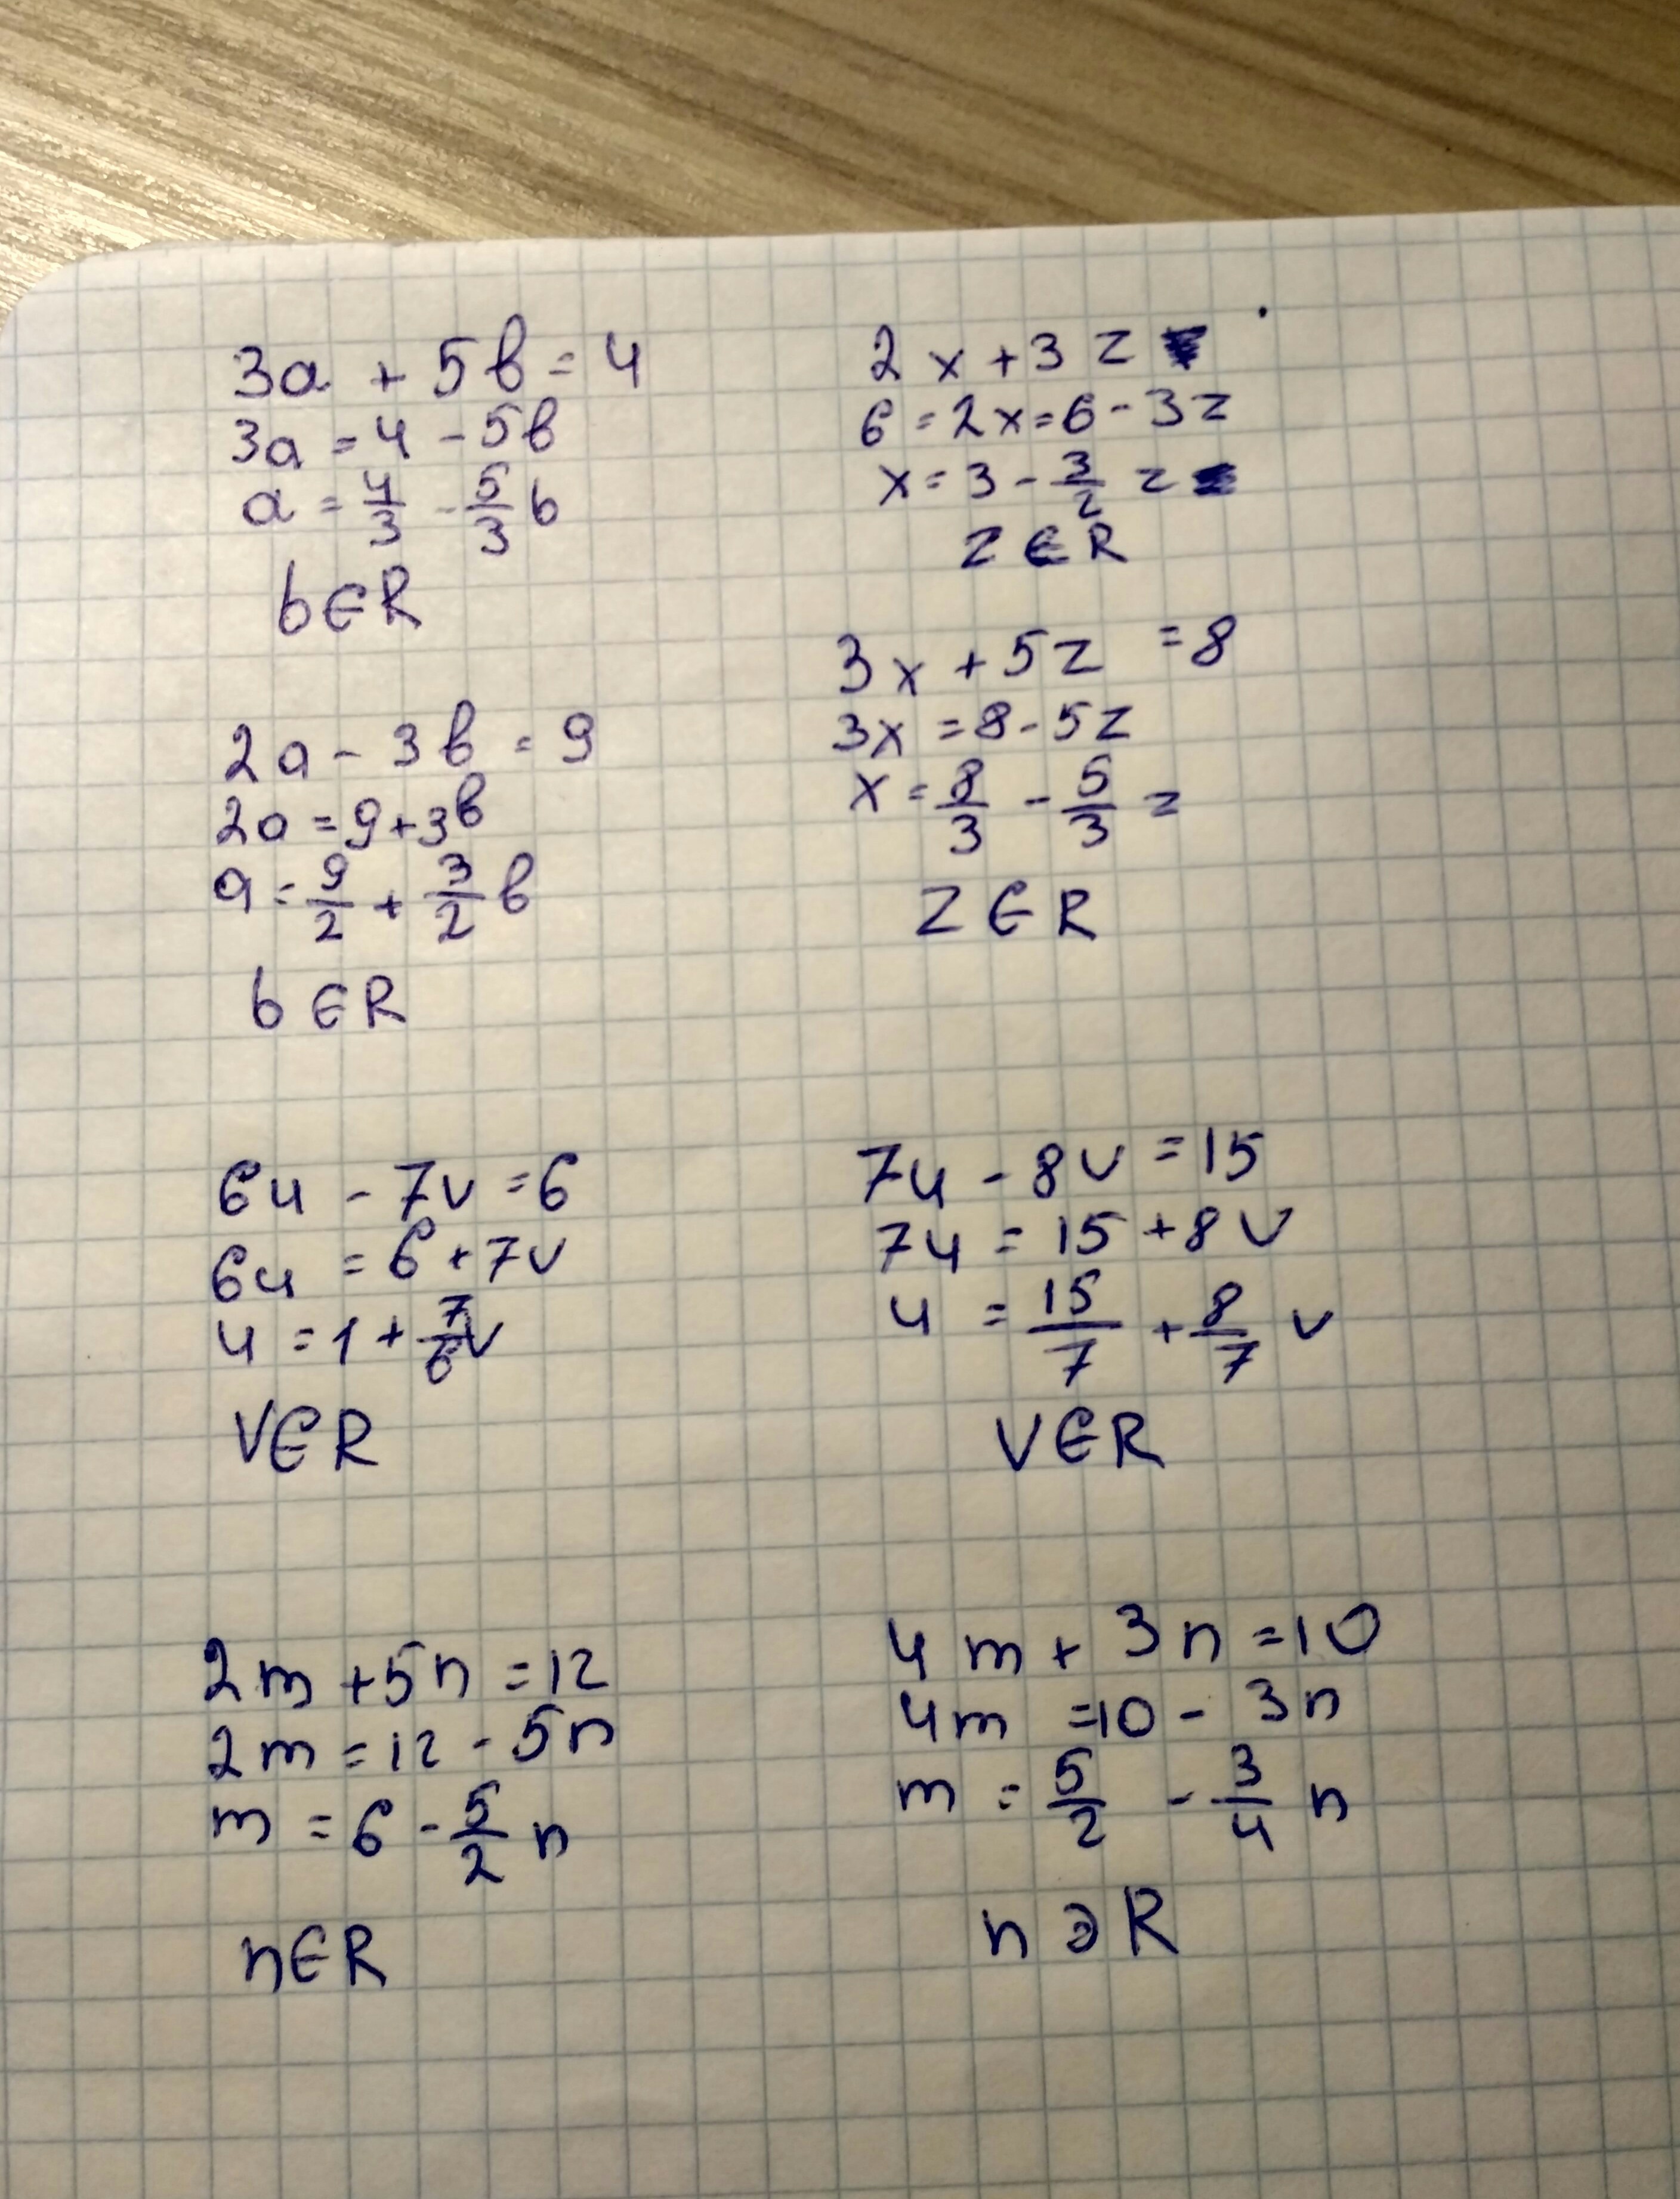 3a + 5b = 4
3a = 4 - 5b
a = 4/3 - 5/3 b
b ∈ R
2a - 3b = 9
2a = 9 + 3b
a = 9/2 + 3/2 b
b ∈ R
6u - 7v = 6
6u = 6 + 7v
u = 1 + 7/6 v
v ∈ R
2m + 5n = 12
2m = 12 - 5n
m = 6 - 5/2 n
n ∈ R
2x + 3z
6 = 2x = 6 - 3z
x = 3 - 3/2 z
z ∈ R
3x + 5z = 8
3x = 8 - 5z
x = 8/3 - 5/3 z
z ∈ R
7u - 8v = 15
7u = 15 + 8v
u = 15/7 + 8/7 v
v ∈ R
4m + 3n = 10
4m = 10 - 3n
m = 5/2 - 3/4 n
n э R